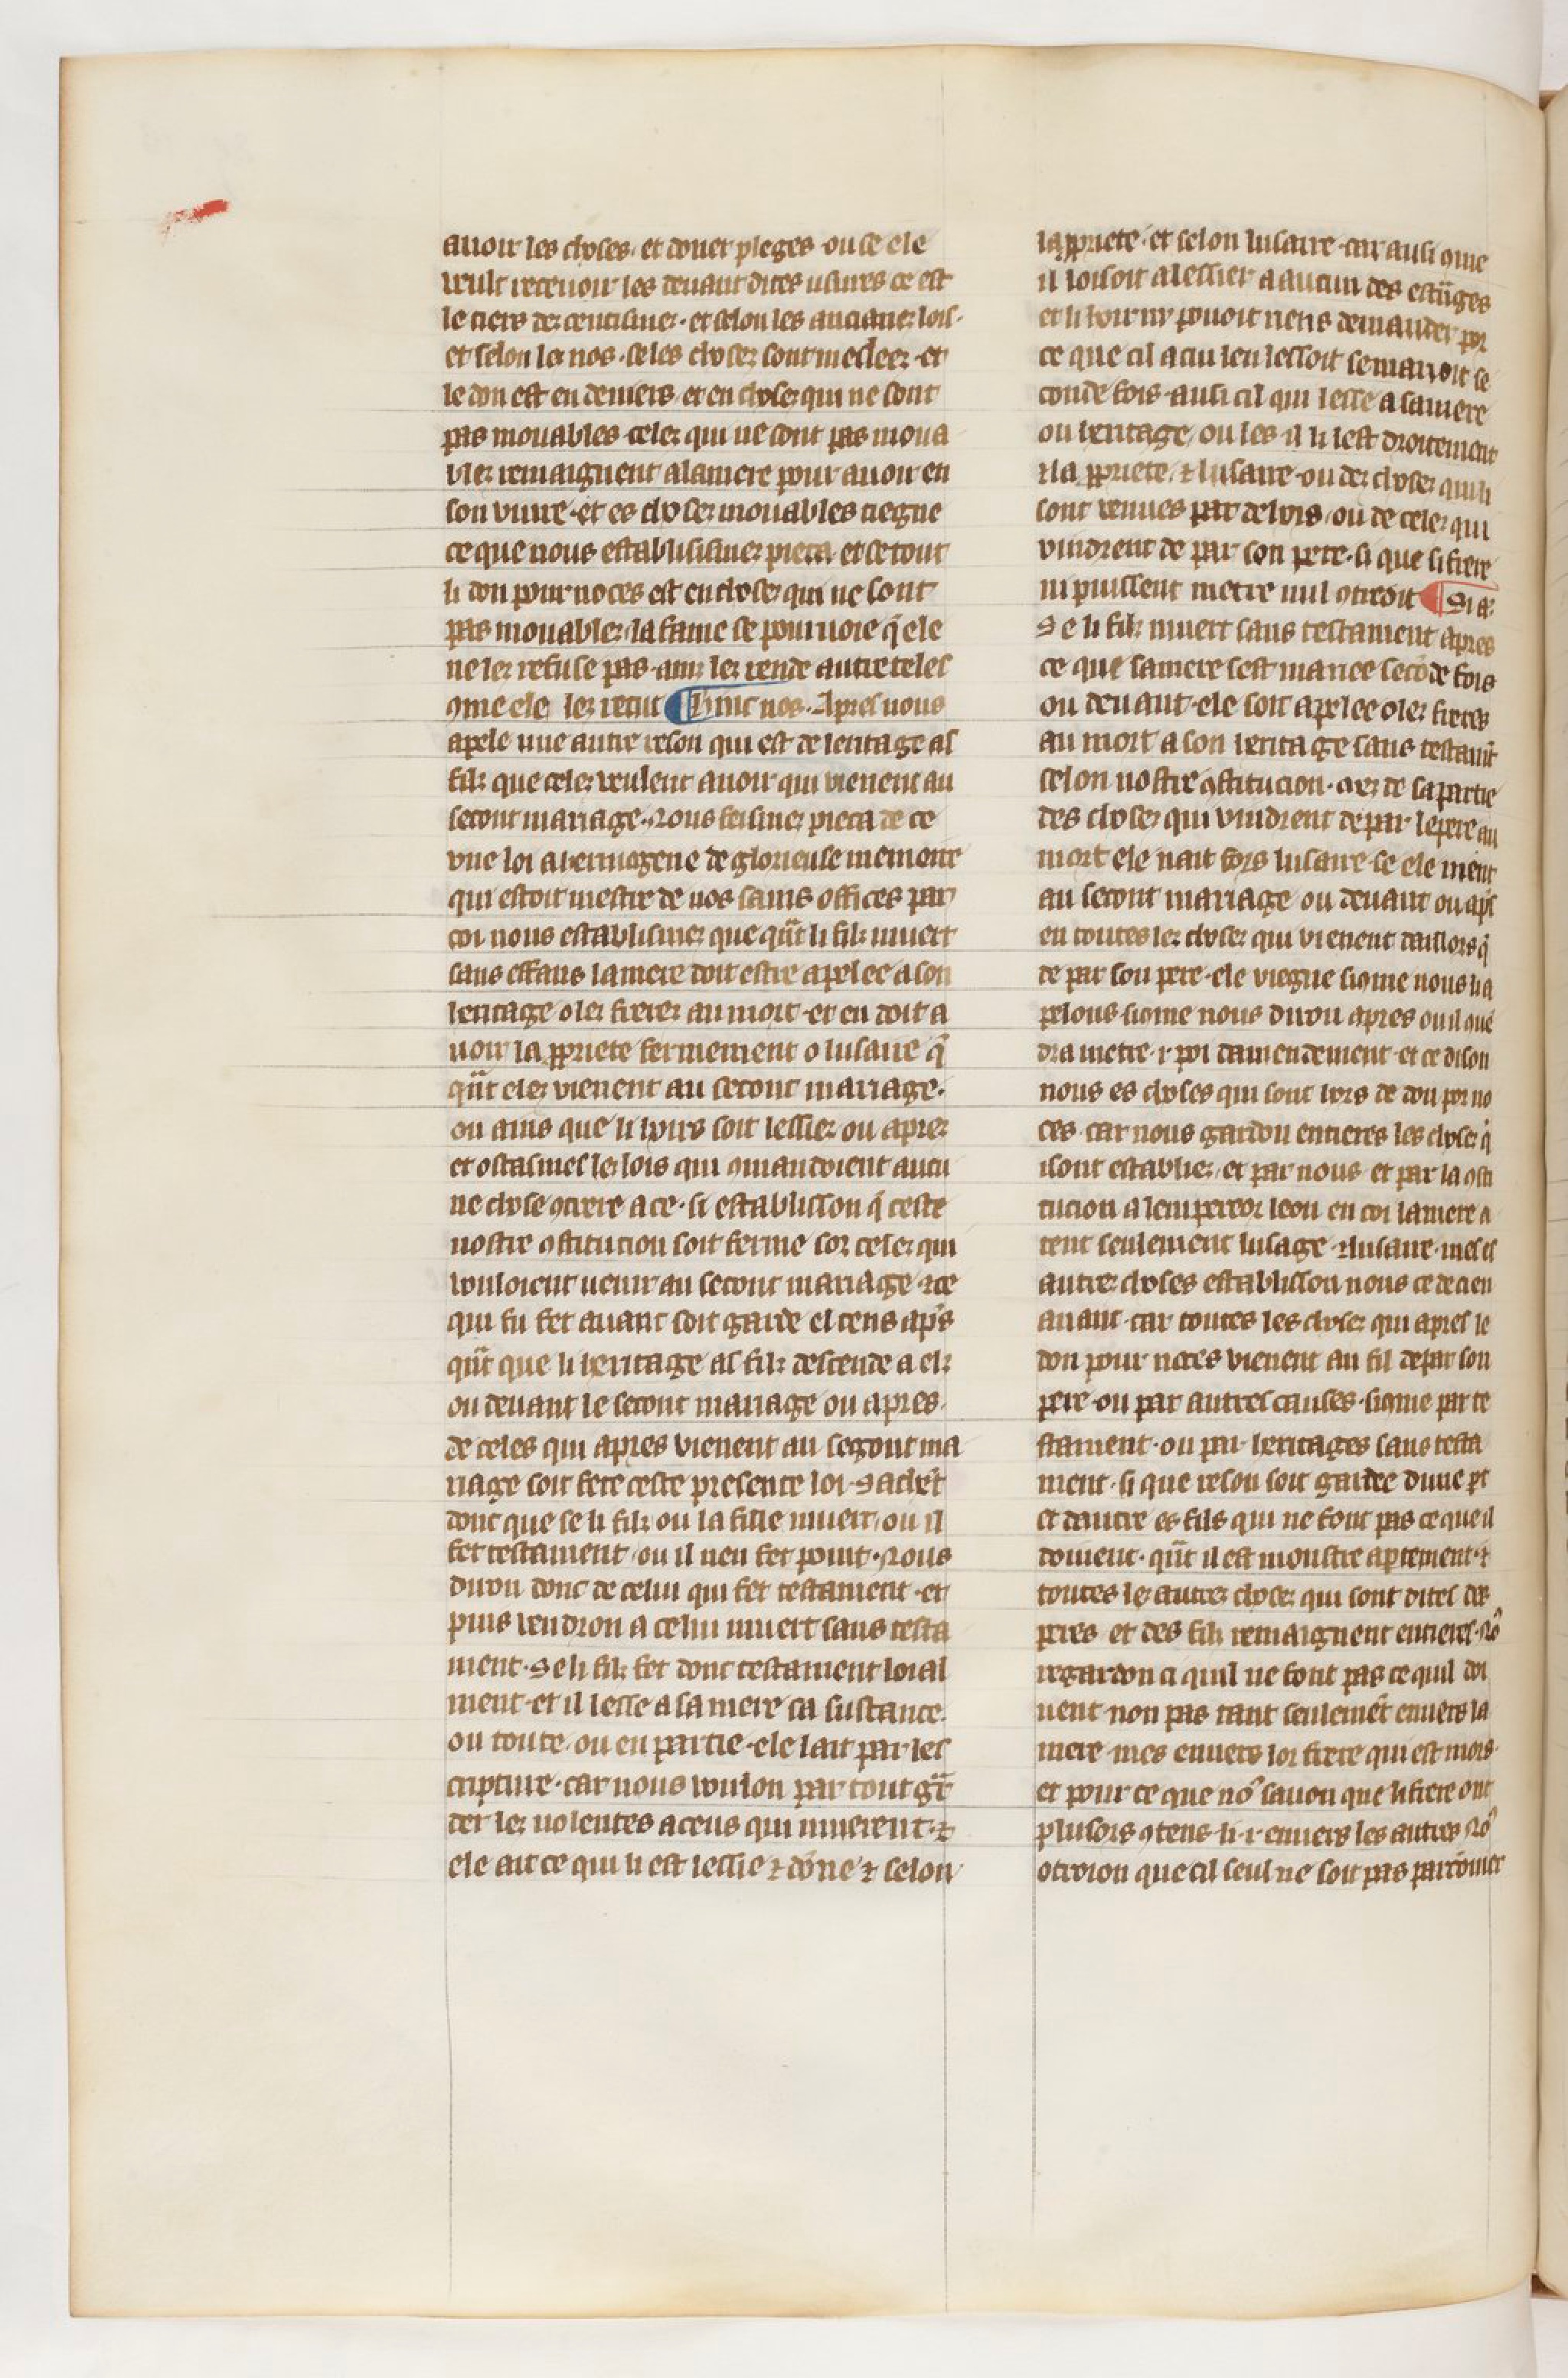 auoir les choses. et doner pleges. ou se ele
veult receuoir les deuant dites usures ce est
le tiers des centismes. et selon les ancianes lois.
et selon les nos. se les choses sont meslees. et
le don est en deniers. et en choses qui ne sont
pas mouables. celes qui ne sont pas moua
bles remaignent a la mere pour auoir en
son viure. et es choses mouables tiegne
ce que nous establisismes pieca. et se tout
li don pour noces est en choses qui ne sont
pas mouables. la fame se pouruoie q̃ ele
ne les refuse pas. ains les rende autreteles
ꝯme ele les recut ¶ Hinc nos. Apres nous
apele une autre reson qui est de leritage as
filz que celes veulent auoir qui vienent au
secont mariage. Nous feismes pieca de ce
vne loi a hermogene de glorieuse memoire
qui estoit mestre de nos sains offices par
coi nous establismes que qũt li filz muert
sans effans la mere doit estre apelee a son
heritage o les freres au mort. et en doit a
uoir la ꝓpriete fermement o lusaire q̃
qũt eles vienent au secont mariage.
ou ains que li hoirs soit lessiez ou apres
et ostasmes les lois qui ꝯmandoient aucu
ne chose ꝯtrere a ce. si establisson q̃ ceste
nostre ꝯstitucion soit ferme sor celes qui
vouloient uenir au secont mariage. ⁊ ce
qui fu fet auant soit garde el tens ap̃s
qũt que li heritage as filz descende a els
ou deuant le secont mariage ou apres.
de celes qui apres vienent au segont ma
riage soit fete ceste presente loi. Sachẽt
donc que se li filz ou la fille muert. ou il
fet testament. ou il nen fet point. Nous
diron donc de celui qui fet testament. et
puis vendron a celui muert sans testa
ment. Se li filz fet donc testament loial
ment. et il lesse a sa mere sa sustance.
ou toute. ou en partie. ele lait par les
cripture. car nous voulon par tout gar
der les uolentes a ceus qui muerent. ⁊
ele ait ce qui li est lessie ⁊ dõne ⁊ selon
la ꝓpriete. et selon lusaire. car ausi ꝯme
il loisoit a lessier a aucun des estrãges
et li hoir ni pouoit riens demander por
ce que cil a cui len lessoit se marioit se
conde fois. ausi cil qui lesse a sa mere
ou heritage. ou les. il li lest droitement
⁊ la ꝓpriete. ⁊ lusaire. ou des choses qui li
sont venues par dehors. ou de celes qui
vindrent de par son pere. si que si frere
ni puissent metre nul ꝯtredit ¶ Si a.
Se li filz muert sans testament apres
ce que sa mere sest mariee secõde fois
ou deuant. ele soit apelee o les freres
au mort a son heritage sans testamt̃
selon nostre ꝯstitucion. mes de sa partie
des choses qui vindrent de par le pere au
mort ele nait fors lusaire. se ele vient
au secont mariage ou deuant ou apr̃s
en toutes les choses qui vienent daillors q̃
de par son pere. ele viegne si ꝯme nous li a
pelons. si ꝯme nous diron apres ou il ꝯuẽ
dra metre .i. poi damendement. et ce dison
nous es choses qui sont hors de don por no
ces. car nous gardon entieres les choses q̃
i sont establies. et par nous. et par la ꝯsti
tucion a lempereor leon en coi la mere a
tent seulement lusage ⁊ lusaire. mes es
autres choses establisson nous ce de ci en
auant. car toutes les choses qui apres le
don pour noces vienent au fil de par son
pere. ou par autres causes. si ꝯme par te
stament. ou par heritages sans testa
ment. si que reson soit gardee dune ꝑt
et dautre es filz qui ne font pas ce que il
doiuent. qũt il est moustre apertement. ⁊
toutes les autres choses qui sont dites des
peres et des filz remaignent entieres. Nõ
regardon ci quil ne font pas ce quil doi
uent. non pas tant seulemẽt enuers la
mere. mes enuers lor frere qui est mors.
et pour ce que nõ sauon que li frere ont
plusors ꝯtens li .i. enuers les autres Nõ
otroion que cil seul ne soit pas parcõnier